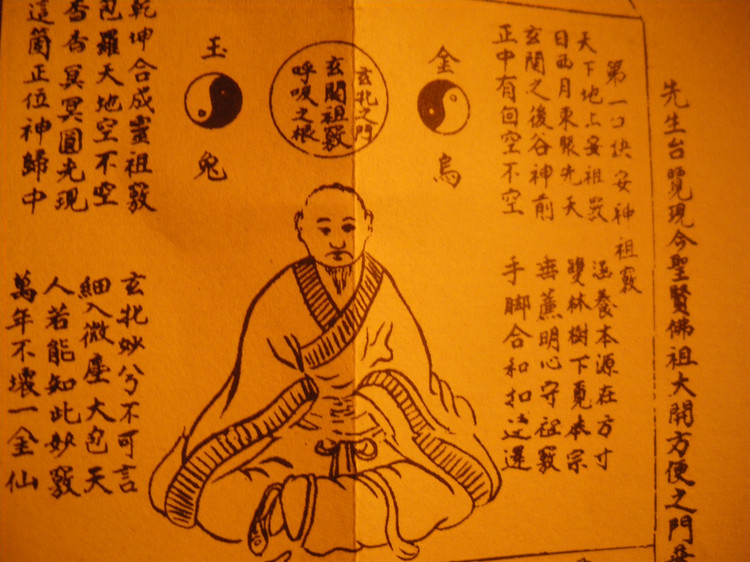 先生台覽現今聖賢佛祖大開方便之門
第一口訣安神祖竅
天下地上安祖竅
日西月東聚先天
玄關之後谷神前
正中有回空不空
涵養本源在方寸
雙林樹下覓本宗
垂簾明心守祖竅
手腳合和扣
金烏
玄牝之門
玄關祖竅
呼吸之根
玉兔
乾坤合成靈祖竅
包羅天地空不空
杳杳冥冥圓光現
這箇正位神歸中
玄牝妙兮不可言
細入微塵大包天
人若能知此妙竅
萬年不壞一金仙